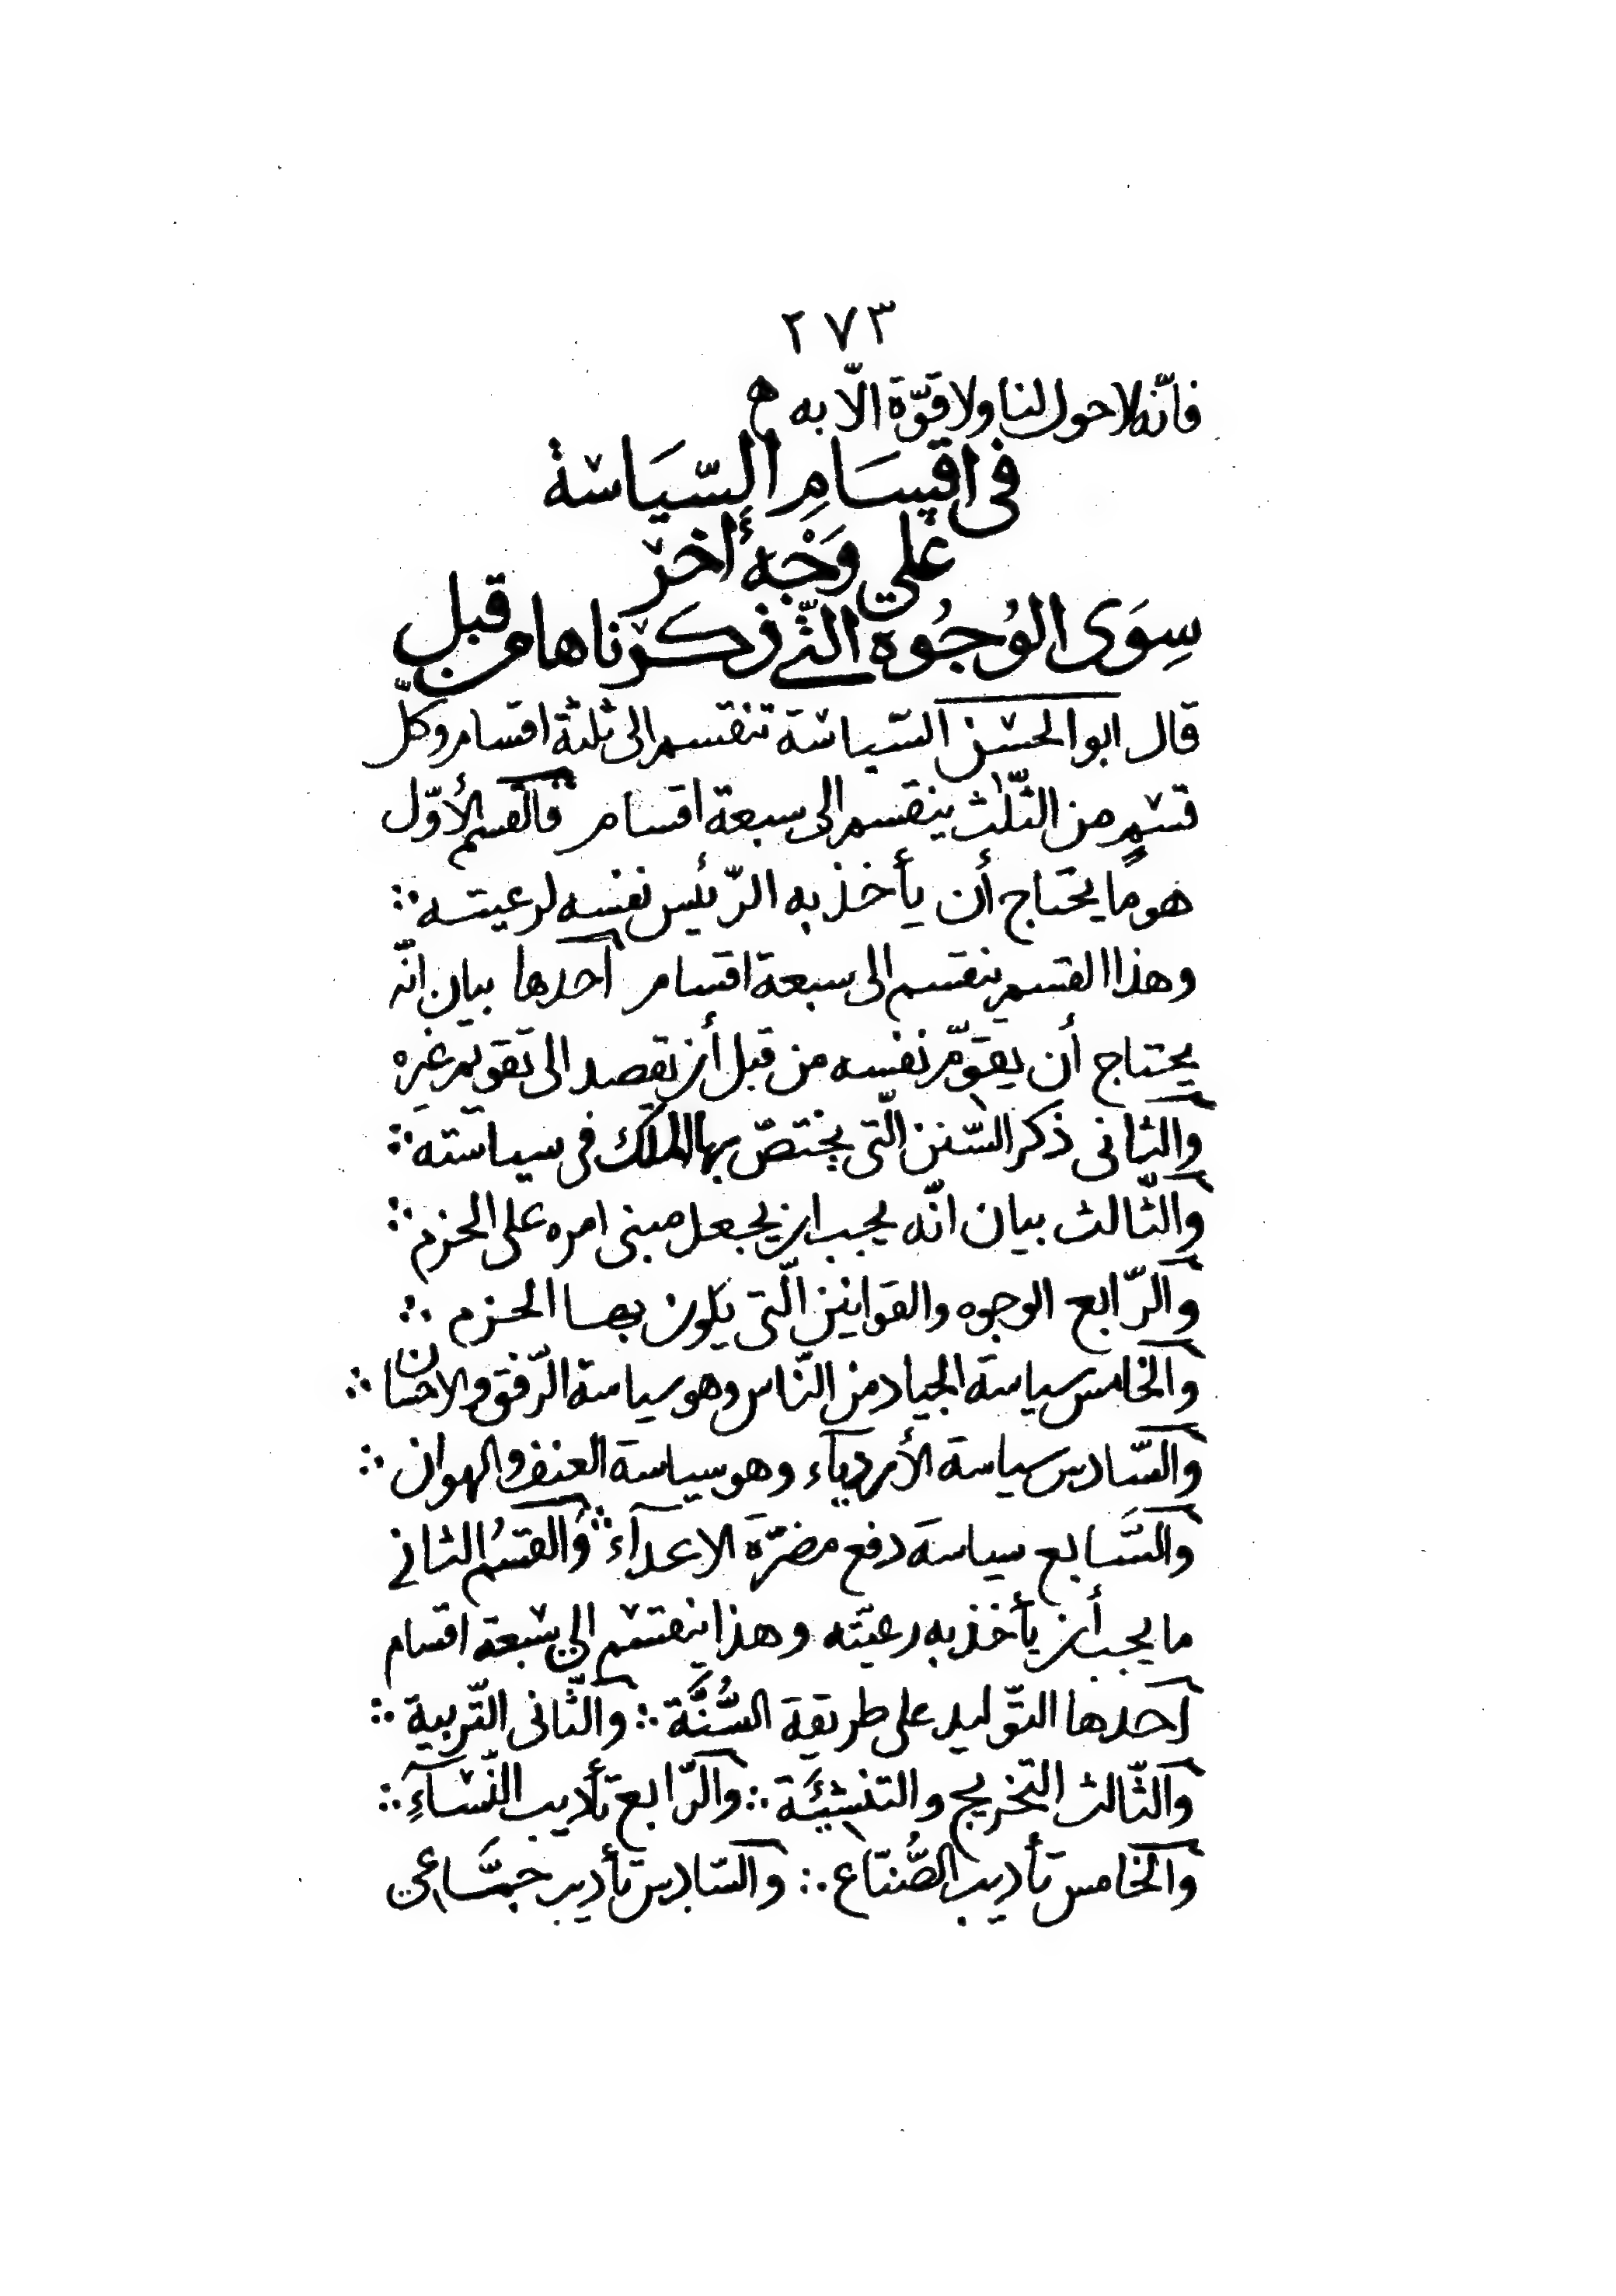 ٢٧٣
فانّه لا حول لنا ولا قوّة الّا به
فى اقسَامِ السّيَاسة
على وَجْهٍ أخر
سِوَى الوُجُوه التّى ذكرناها من قبل
قال ابو الحسن السّياسة تنقسم الى ثلثة اقسام وكلّ
قسم من الثّلث ينقسم الى سبعة اقسام فالقسم الأوّل
هو ما يحتاج أن يأخذ به الرّئيس نفسه لرعيته
وهذا القسم ينقسم الى سبعة اقسام احدها بيان انّه
يحتاج أن يقوّم نفسه من قبل أن يقصد الى تقويم غيره
والثانى ذكر السّنن الّتى يختصّ بها الملك فى سياسته
والثّالث بيان انّه يجب ان يجعل مبنى امره على الحزم
والرّابع الوجوه والقوانين الّتى يكون بها الحزم
والخامس سياسة الجياد من النّاس وهو سياسة الرّفق والاحسان
والسّادس سياسة الأردياء وهو سياسة العنف والهوان
والسَّابع سياسة دفع مضرّة الاعدآء والقسمُ الثانى
ما يجب أن يأخذ به رعيّته وهذا ينقسم الى سبعة اقسام
احدها التّوليد على طريقة السُّنَّة والثّانى التّربية
والثّالث التخريج والتنشئَة والرّابع تأديب النّسآءِ
والخامس تأديب الصُّنّاع والسّادس تأديب جمَّاعى